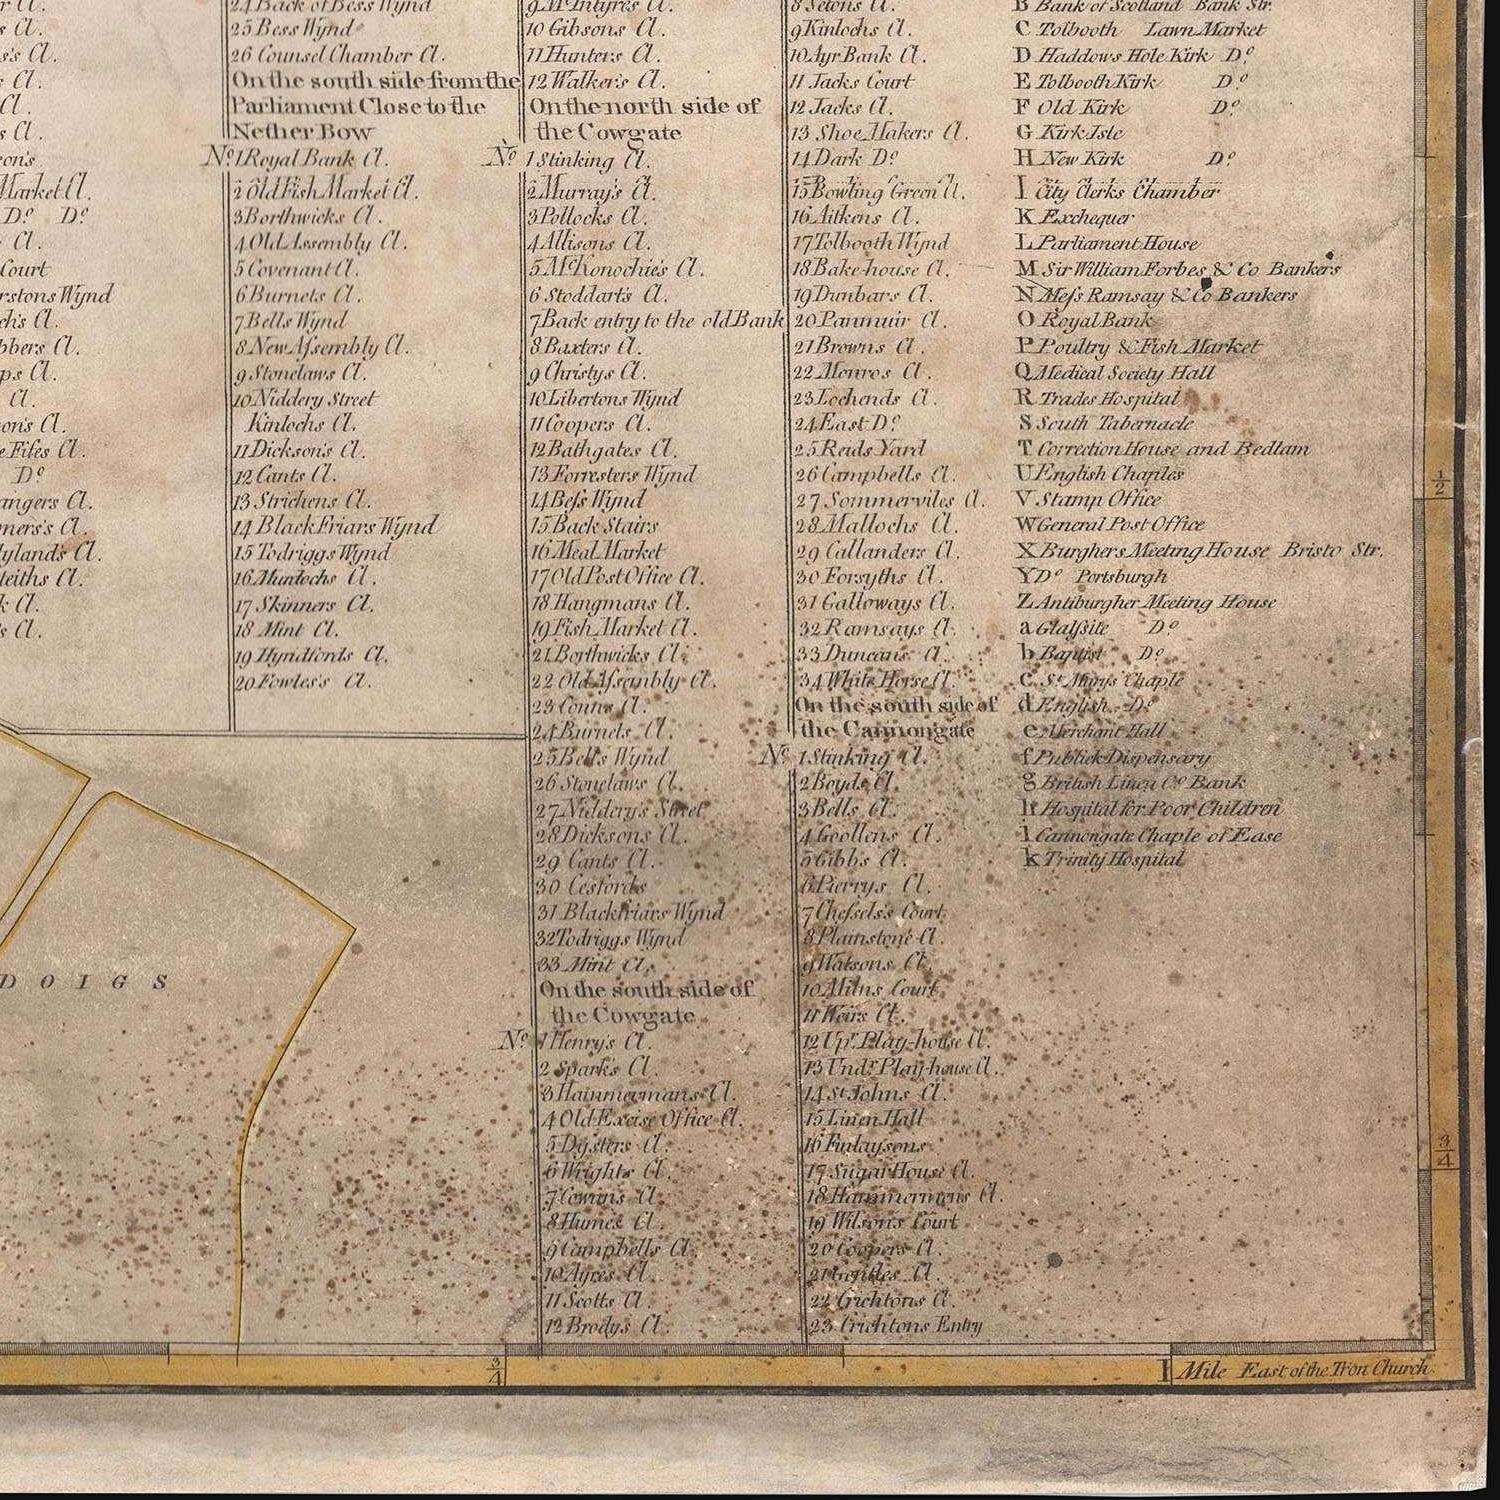 25 Bess Wynd
26 Counsel Chamber Cl.
On the south side from the
Parliament Close to the
Nether Bow
No. 1 Royal Bank Cl.
2 Old Fish Market Cl.
3 Borthwicks Cl.
4 Old Assembly Cl.
5 Covenant Cl.
6 Burnets Cl.
7 Bells Wynd
8 New Assembly Cl.
9 Stonelaws Cl.
10 Niddery Street
Kinlochs Cl.
11 Dickson's Cl.
12 Cants Cl.
13 Strichens Cl.
14 Black Friars Wynd
15 Todriggs Wynd
16 Murdochs Cl.
17 Skinners Cl.
18 Mint Cl.
19 Hyndfords Cl.
20 Fowles's Cl.
DOIGS
9 McIntyres Cl.
10 Gibsons Cl.
11 Hunters Cl.
12 Walkers Cl.
On the north side of
the Cowgate
No. 1 Stinking Cl.
2 Murray's Cl.
3 Pollocks Cl.
4 Allisons Cl.
5 McKonochie's Cl.
6 Stoddarts Cl.
7 Back entry to the old Bank
8 Baxters Cl.
9 Christys Cl.
10 Libertons Wynd
11 Coopers Cl.
12 Bathgates Cl.
13 Forresters Wynd
14 Bess Wynd
15 Back Stairs
16 Meal Market
17 Old Post Office Cl.
18 Hangmans Cl.
19 Fish Market Cl.
21 Borthwicks Cl.
22 Old Assembly Cl.
23 Conns Cl.
24 Burnets Cl.
25 Bells Wynd
26 Stonelaws Cl.
27 Niddery's Street
28 Dicksons Cl.
29 Cants Cl.
30 Cesfords
31 Blackfriars Wynd
32 Todriggs Wynd
33 Mint Cl.
On the south side of
the Cowgate
No. 1 Henry's Cl.
2 Sparks Cl.
3 Hammermans Cl.
4 Old Excise Office Cl.
5 Dysters Cl.
6 Wrights Cl.
7 Cowans Cl.
8 Humes Cl.
9 Campbells Cl.
10 Ayres Cl.
11 Scotts Cl.
12 Brodys Cl.
8 Setons Cl.
9 Kinlochs Cl.
10 Ayr Bank Cl.
11 Jacks Court
12 Jacks Cl.
13 Shoe Makers Cl.
14 Dark Do.
15 Bowling Green Cl.
16 Aitkens Cl.
17 Tolbooth Wynd
18 Bake-house Cl.
19 Dunbars Cl.
20 Panmuir Cl.
21 Browns Cl.
22 Monros Cl.
23 Lochends Cl.
24 East Do.
25 Reids Yard
26 Campbells Cl.
27 Sommerviles Cl.
28 Mallochs Cl.
29 Callanders Cl.
30 Forsyths Cl.
31 Galloways Cl.
32 Ramsays Cl.
33 Duncans Cl.
34 White Horse Cl.
On the south side of
the Cannongate
No. 1 Stinking Cl.
2 Boyds Cl.
3 Bells Cl.
4 Goollens Cl.
5 Gibbs Cl.
6 Pierrys Cl.
7 Chessels's Court
8 Plainstone Cl.
9 Watsons Cl.
10 Milns Court
11 Weirs Cl.
12 Upr. Play-house Cl.
13 Undr. Play-house Cl.
14 St Johns Cl.
15 Linen Hall
16 Finlaysons
17 Sugar House Cl.
18 Hammermens Cl.
19 Wilsons Court
20 Coopers Cl.
21 Gentles Cl.
22 Crichtons Cl.
23 Crichtons Entry
B Bank of Scotland Bank Str.
C Tolbooth Lawn Market
D Haddows Hole Kirk Do.
E Tolbooth Kirk Do.
F Old Kirk Do.
G Kirk Isle
H New Kirk Do.
I City Clerks Chamber
K Exchequer
L Parliament House
M Sir William Forbes & Co Bankers
N Mess Ramsay & Co Bankers
O Royal Bank
P Poultry & Fish Market
Q Medical Society Hall
R Trades Hospital
S South Tabernacle
T Correction House and Bedlam
U English Chaples
V Stamp Office
W General Post Office
X Burghers Meeting House Bristo Str.
Y Do. Portsburgh
Z Antiburgher Meeting House
a Glassite Do.
b Baptist Do.
c St. Marys Chaple
d English Do.
e Merchant Hall
f Publick Dispensary
g British Linen Co. Bank
h Hospital for Poor Children
i Cannongate Chaple of Ease
k Trinity Hospital
1/2
3/4
3/4
1 Mile East of the Tron Church